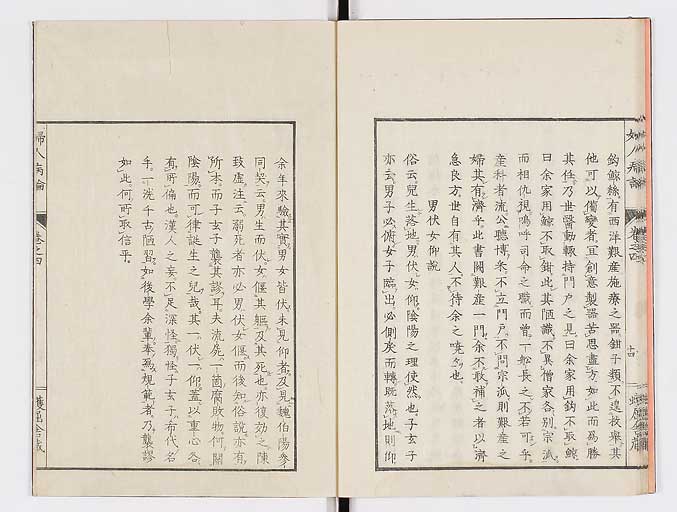 鈎鯨絲有西洋艱産施療之器鉗子類不遑枚擧其
他可以備變者宜創意製器苦思盡方如此而爲勝
其任乃世醫動輙持門戸之見曰余家用鈎不取鯨
曰余家用鯨不取鉗此其陋識不異僧家各別宗派
而相仇視嗚呼司命之職而曾一舩長之不若可乎
産科者流公聽博采不立門戸不問宗派則艱産之
婦其有濟乎此書闕艱産一門余不敢補之者以濟
急良方世自有其人不待余之嘵々也
男伏女仰説
俗云兒生落地男伏女仰陰陽之理使然也子玄子
亦云男子必俯女子臨出必側戾而轉既落地則仰
余年來驗其實男女皆伏未見仰者及見魏伯陽參
同契云男生而伏女偃其軀及其死也亦復効之陳
致虚注云溺死者亦必男伏女偃而後知俗説亦有
所本而子玄子襲其謬耳夫流尸一箇腐敗物何關
陰陽而可律誕生之兒哉其一伏一仰蓋以重心各
有所偏也漢人之妄不足深怪獨怪子玄子希代名
手一洗千古陋習如後學余輩奉爲規範者乃襲謬
如此何所取信乎
婦人病論
卷之四